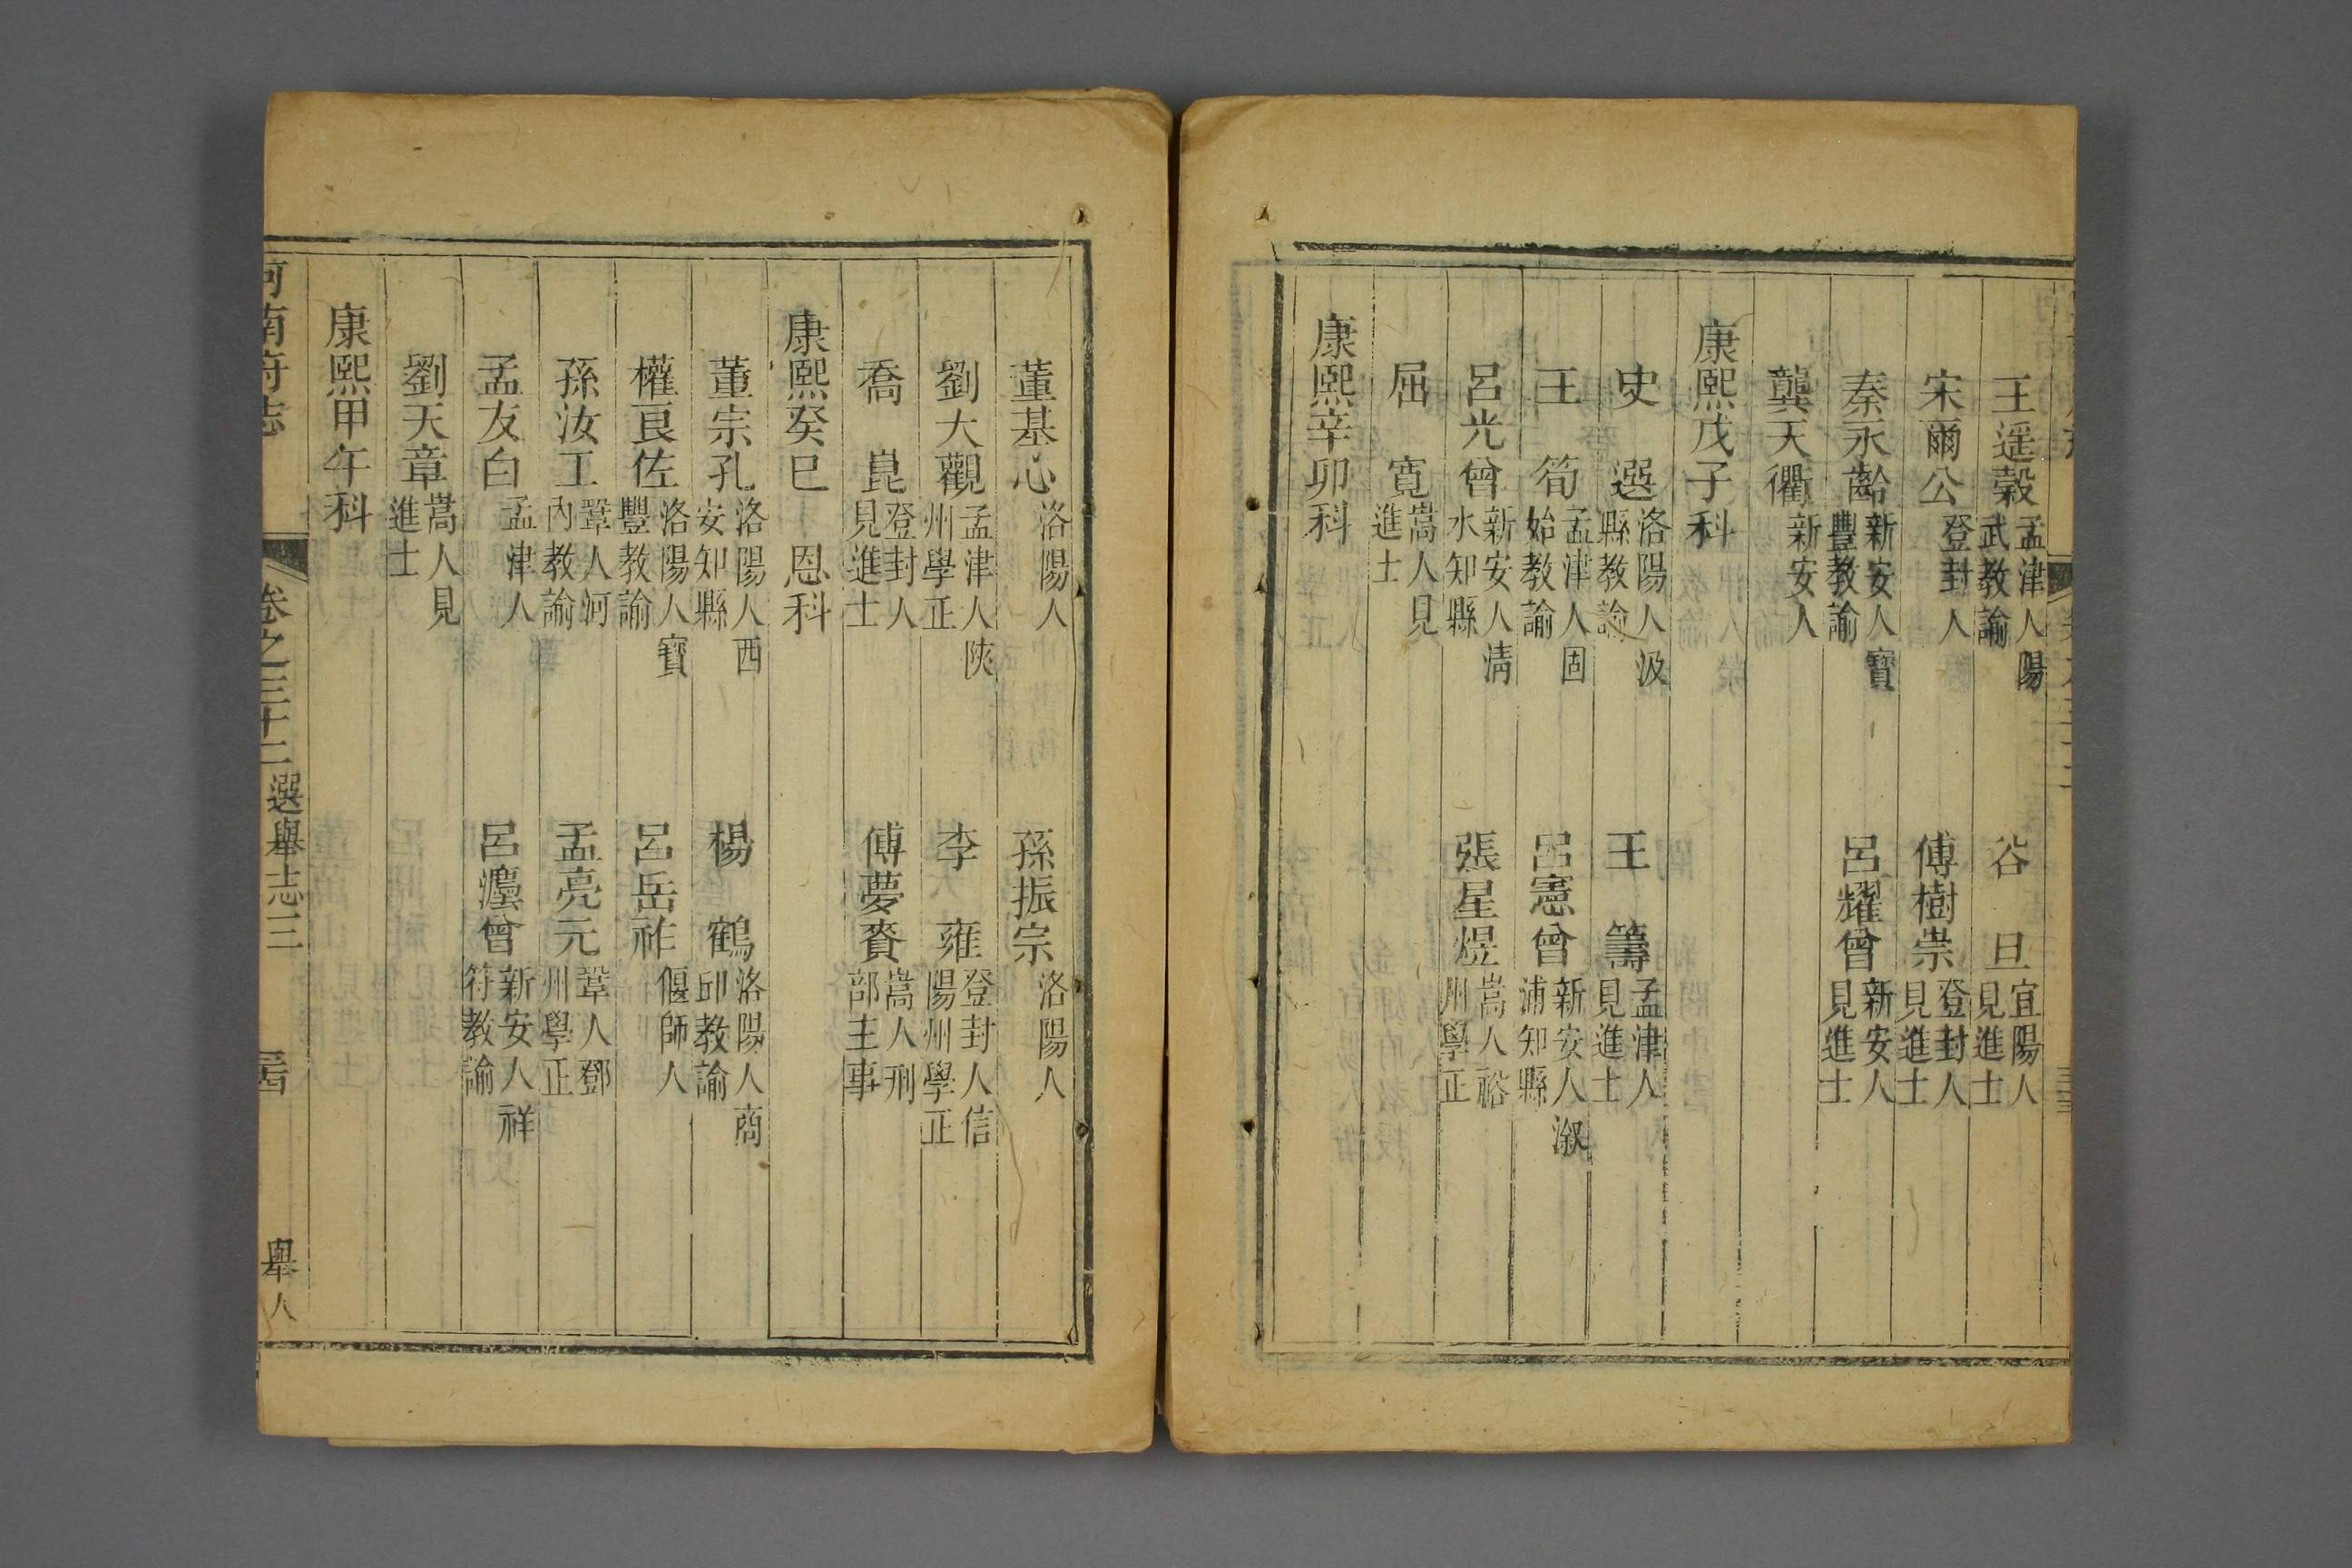 王遥穀 孟津人陽武教諭 谷旦 宜陽人見進士
宋爾公 登封人 傅樹崇 登封人見進士
秦永齡 新安人寶豐教諭 呂耀曾 新安人見進士
龔天衢 新安人
康熙戊子科
史選 洛陽人汲縣教諭 王籌 孟津人見進士
王筍 孟津人固始教諭 呂憲曾 新安人溆浦知縣
呂光曾 新安人清水知縣 張星煜 嵩人裕州學正
屈寛 嵩人見進士
康熙辛卯科
董基心 洛陽人 孫振宗 洛陽人
劉大觀 孟津人陝州學正 李雍 登封人信陽州學正
喬崑 登封人見進士 傅夢賚 嵩人刑部主事
康熙癸巳恩科
董宗孔 洛陽人西安知縣 楊鶴 洛陽人商邱教諭
權良佐 洛陽人寶豐教諭 呂岳祚 偃師人
孫汝工 鞏人河內教諭 孟亮元 鞏人鄧州學正
孟友白 孟津人 呂瀍曾 新安人祥符教諭
劉天章 嵩人見進士
康熙甲午科
河南府志 卷之三十二 選舉志三 舉人